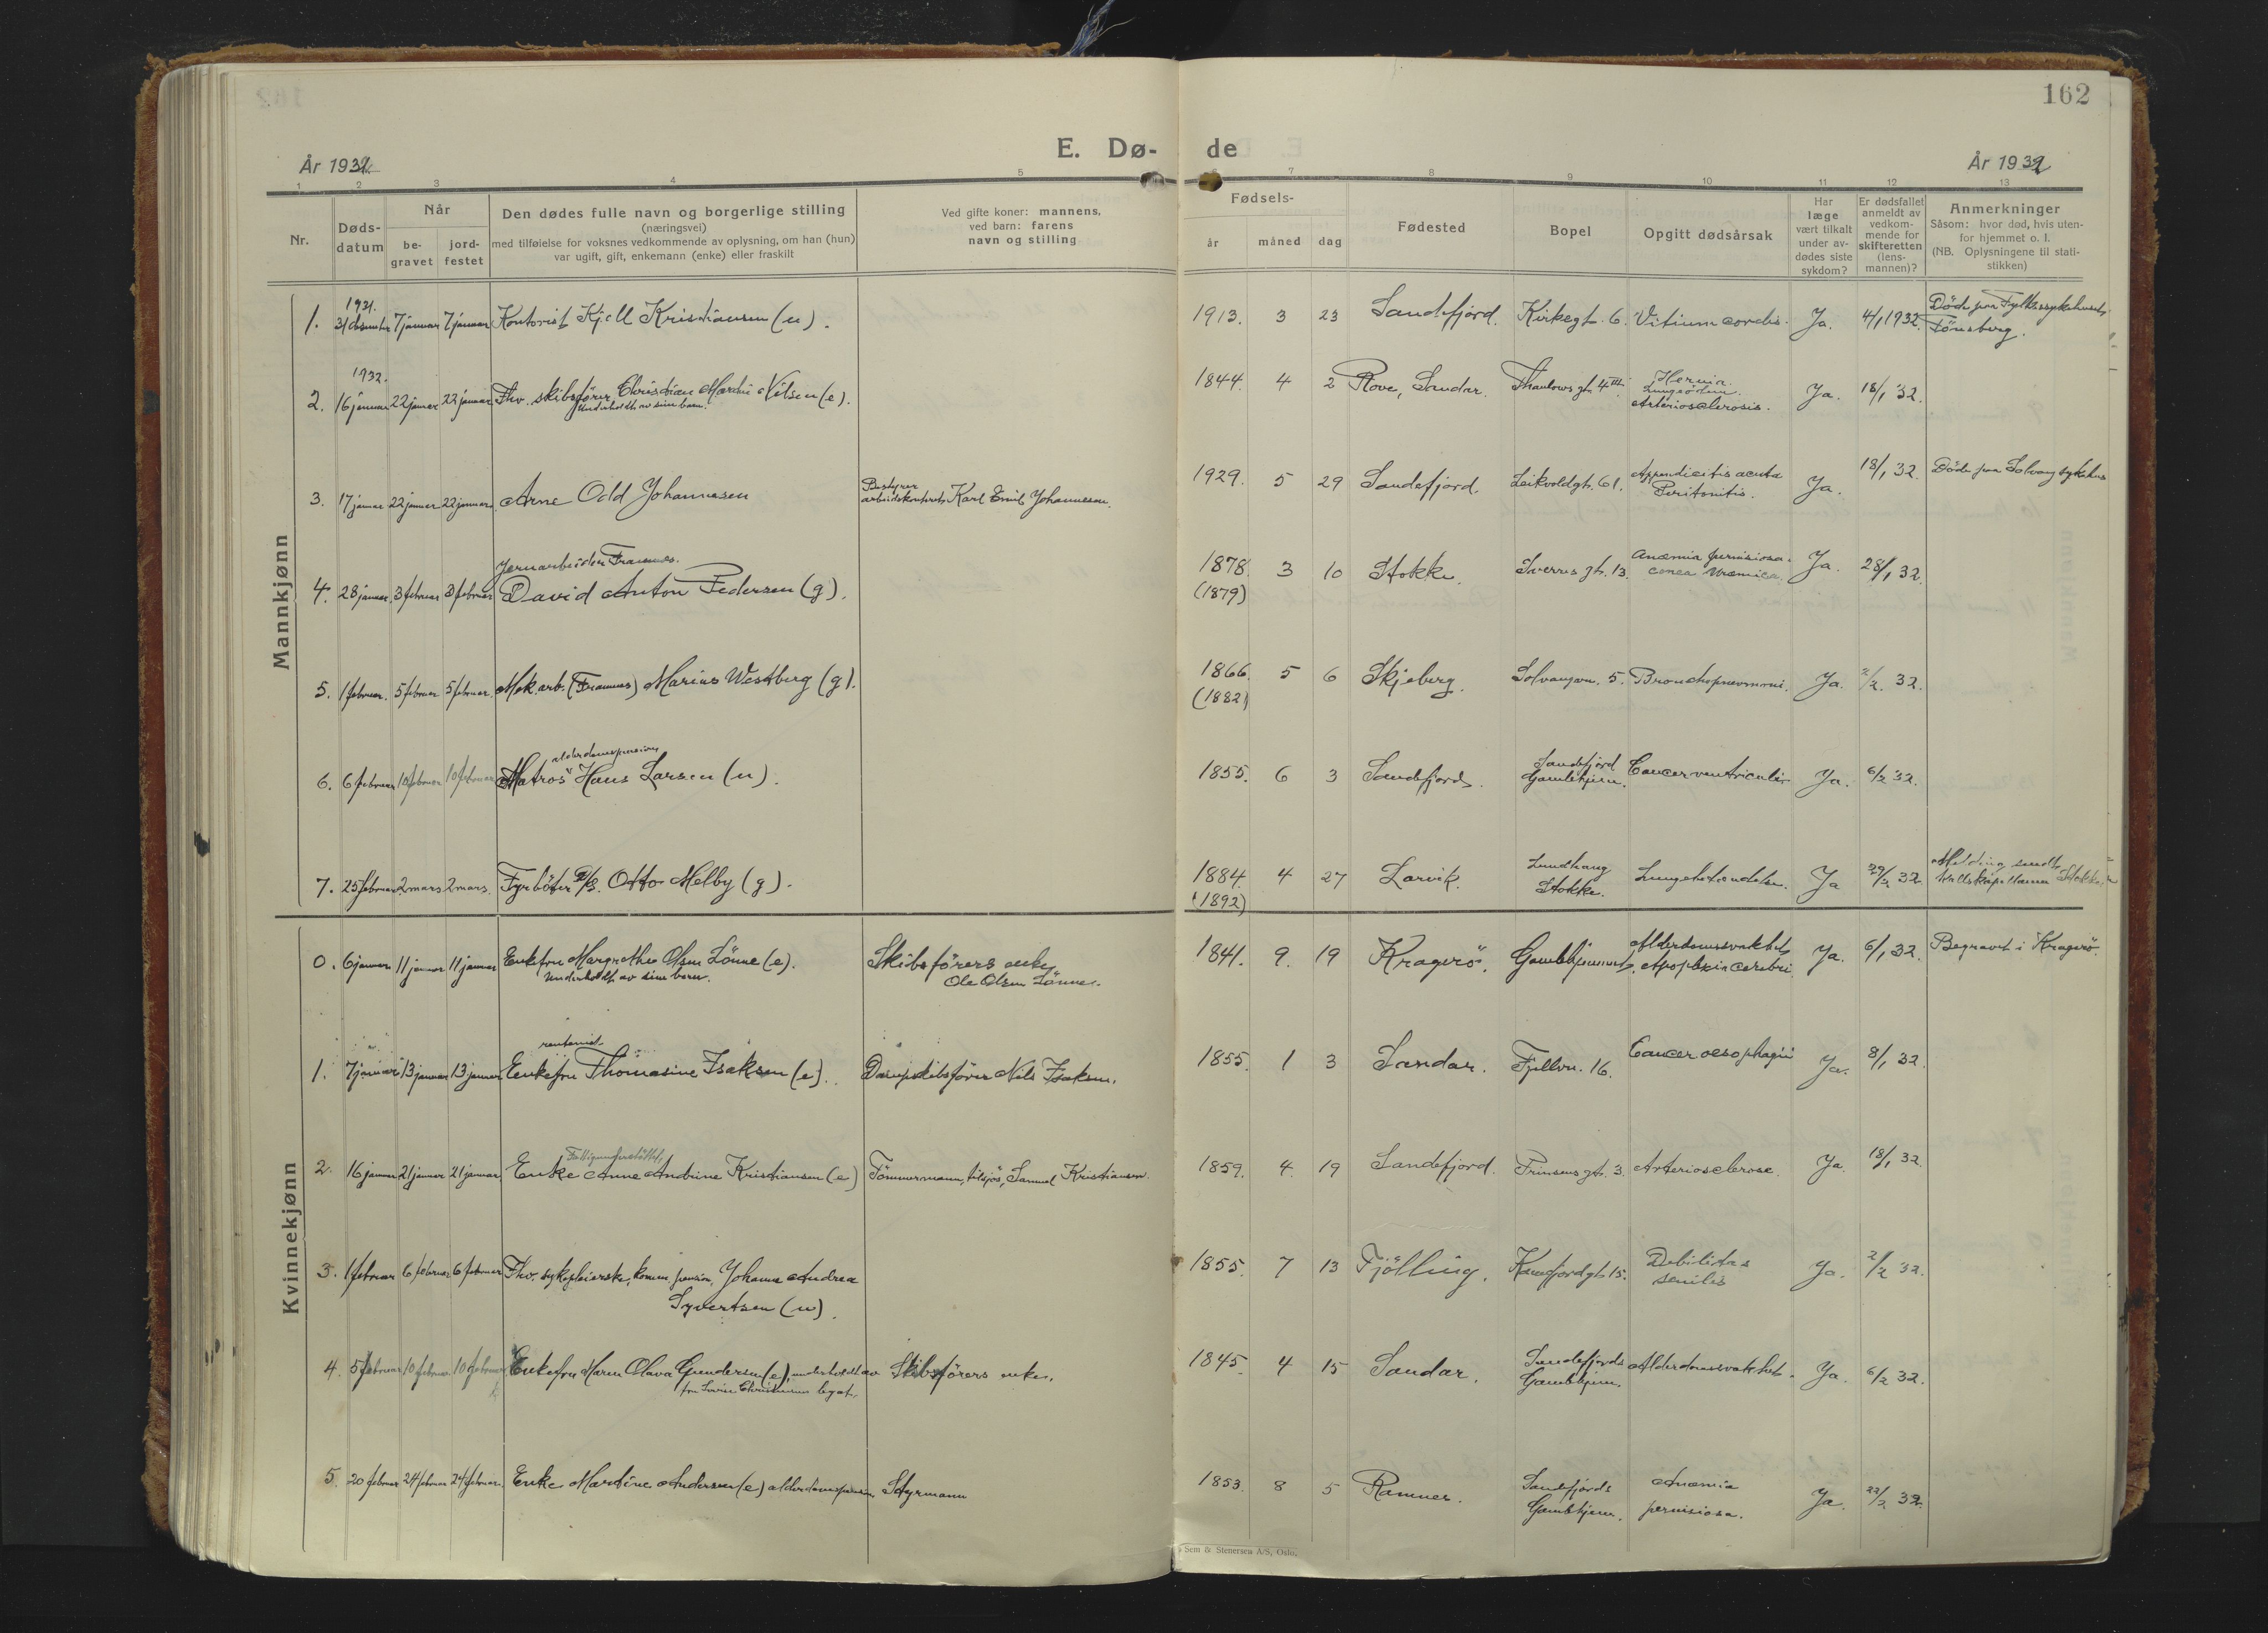 162
E. Dø- de
År 1932.
År 1932
1 2 3 4 5 6 7 8 9 10 11 12 13
Nr.
Døds-
datum
Når
be-
gravet
jord-
festet
Den dødes fulle navn og borgerlige stilling
(næringsvei)
med tilføielse for voksnes vedkommende av oplysning, om han (hun)
var ugift, gift, enkemann (enke) eller fraskilt
Ved gifte koner: mannens,
ved barn: farens
navn og stilling
Fødsels-
år måned dag
Fødested
Bopel
Opgitt dødsårsak
Har
læge
vært tilkalt
under av-
dødes siste
sykdom?
Er dødsfallet
anmeldt av
vedkom-
mende for
skifteretten
(lens-
mannen)?
Anmerkninger
Såsom: hvor død, hvis uten-
for hjemmet o. l.
(NB. Oplysningene til stati-
stikken)
Mannkjønn
1931.
1. 31 desember 7 januar 7 januar Kontorist Kjell Kristiansen (u). 1913. 3 23 Sandefjord. Kirkegt. 6. Vitium cordis. Ja. 4/1 1932. Döde paa Fylkessykehuset,
Tönsberg.
1932.
2. 16 januar 22 januar 22 januar Fhv. skibsförer Christian Martin Nilsen (e). 1844. 4 2 Rove, Sandar. Thaulows gt. 4 III. Hernia.
Underholdt av sine barn. Lungeödem.
Arteriosclerosis. Ja. 18/1 32.
3. 17 januar 22 januar 22 januar Arne Odd Johannesen Bestyrer
arbeidskontoret Karl Emil Johannesen. 1929. 5 29 Sandefjord. Leikvoldgt. 61. Appendicitis acuta
Peritonitis. Ja. 18/1 32. Döde paa Solvang sykehus
Jernarbeider Framnes.
4. 28 januar 3 februar 3 februar David Anton Pedersen (g). 1878. 3 10 Stokke. Sverres gt. 13. Anæmia pernisiosa.
(1879) coma uræmica. Ja. 28/1 32.
5. 1 februar. 5 februar 5 februar. Mek. arb. (Framnes) Marius Westberg (g). 1866. 5 6 Skjeberg. Solvangvn. 5. Bronchopneumoni. Ja. 2/2. 32.
(1882)
alderdomspension
6. 6 februar 10 februar 10 februar Matros Hans Larsen (u). 1855. 6 3 Sandefjord. Sandefjord
Gamlehjem. Cancer ventriculi. Ja. 6/2 32.
7. 25 februar 2 mars 2 mars. Fyrböter D/S. Otto Melby (g). 1884. 4 27 Larvik. Lundhaug
Stokke. Lungebetendelse. Ja 29/2 32. Melding sendt
(1892) Stokke.
Kvinnekjønn
0. 6 januar 11 januar 11 januar Enkefru Margrethe Olsen Lönne (e). Skibsförers enke
Underholdt av sine barn. Ole Olsen Lönne. 1841. 9. 19 Kragerö. Gamlehjemmet. Alderdomssvakhet
Apoplexia cerebri. Ja. 6/1 32. Begravet i Kragerö.
rentenist
1. 7 januar 13 januar 13 januar Enkefru Thomasine Isaksen (e). Dampskibsförer Nils Isaksen. 1855. 1 3 Sandar. Fjellvn. 16. Cancer oesophagii Ja. 8/1 32.
Fattigunderstöttet,
2. 16 januar 21 januar 21 januar Enke Anne Andrine Kristiansen (e) Tömmermann, tilsjös, Samuel Kristiansen. 1859. 4. 19 Sandefjord. Prinsens gt. 3. Arteriosclerose. Ja. 18/1 32.
3. 1 februar 6 februar 6 februar Fhv. sykepleierske, komm. pension, Johanne Andrea
Syvertsen (u). 1855. 7 13 Tjölling. Kamfjordgt. 15. Debilitas
senilis Ja. 2/2 32.
4. 5 februar 10 februar 10 februar Enkefru Maren Olava Gundersen (e), underholdt av Skibsförers enke.
fru Lovise Christensens legat. 1845. 4 15 Sandar. Sandefjords
Gamlehjem. Alderdomssvakhet. Ja. 6/2 32.
5. 20 februar 24 februar 24 februar. Enke Martine Andersen (e) alderdomspension Styrmann 1853. 8 5 Ramnes. Sandefjords
Gamlehjem. Anæmia
pernisiosa. Ja. 22/2 32.
Sem & Stenersen A/S, Oslo.